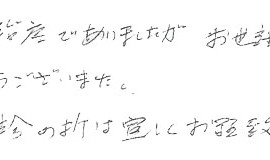 でありましたが お世
うございました。
の折は宜しくお